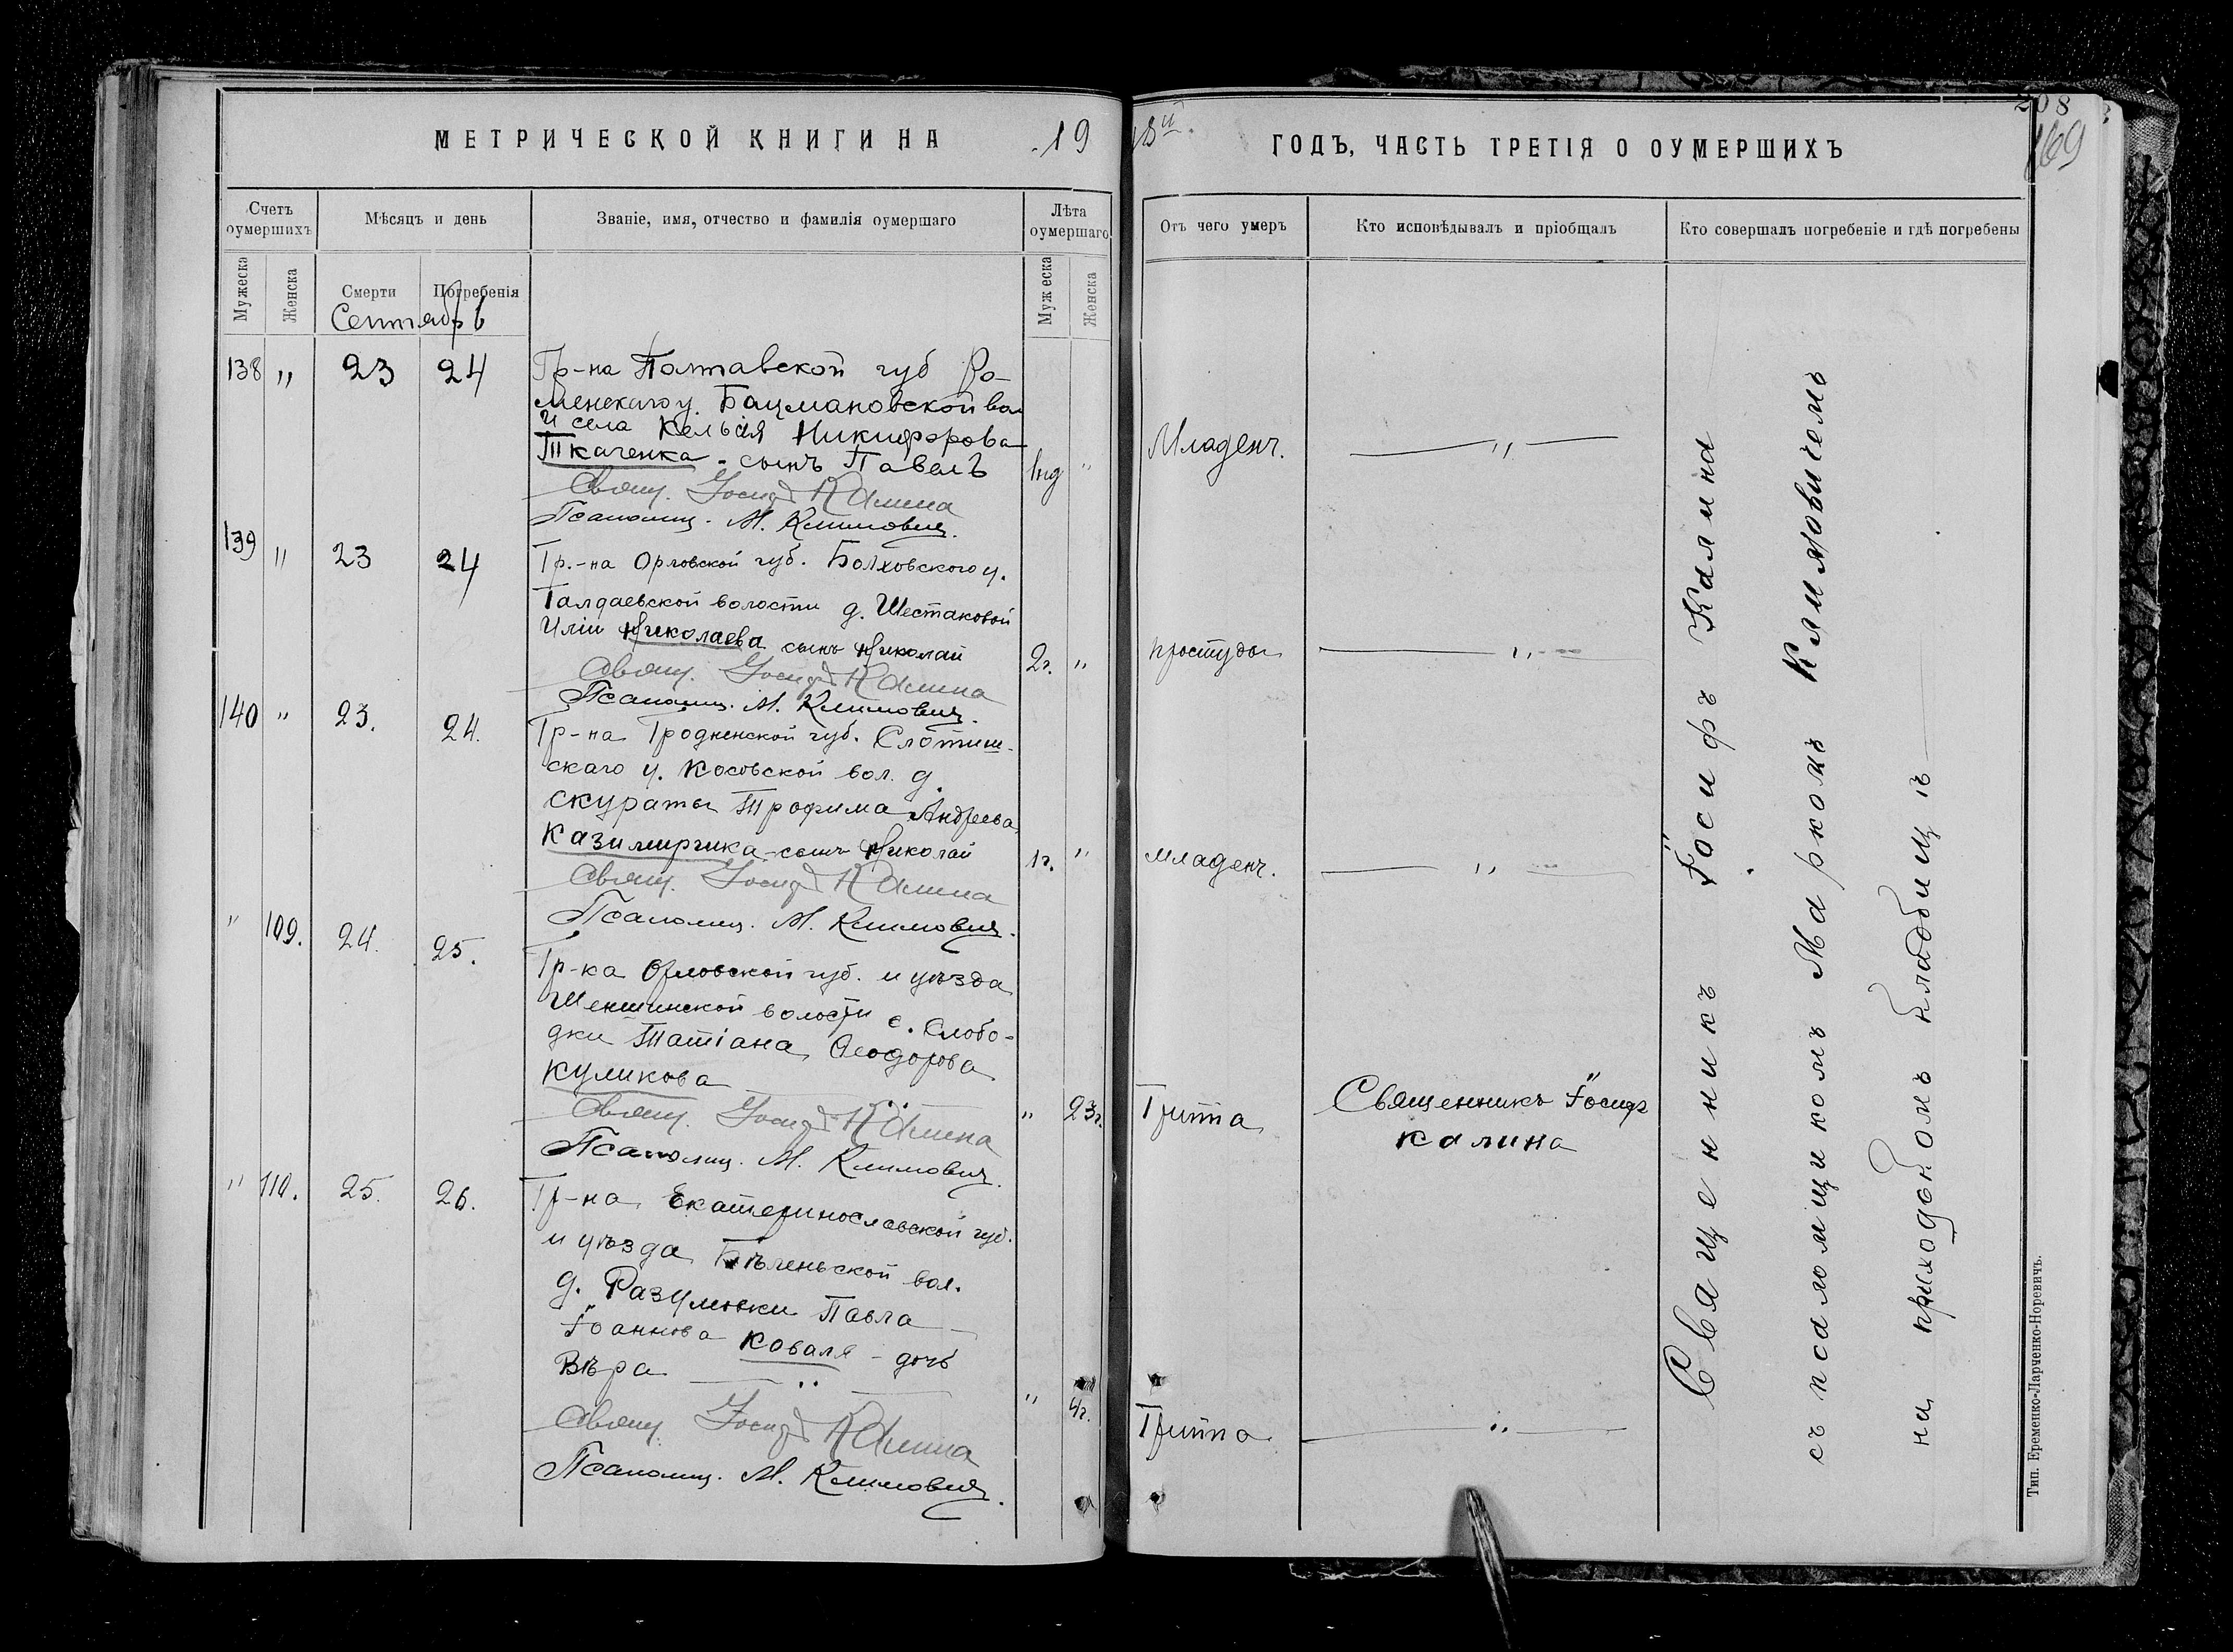 МЕТРИЧЕСКОЙ КНИГИ НА 19
18й. ГОДЪ, ЧАСТЬ ТРЕТІЯ О ОУМЕРШИХЪ
208
169
Счетъ оумершихъ
Мѣсяцъ и день
Званіе, имя, отчество и фамилія оумершаго
Лѣта оумершаго
Мужеска
Женска
Смерти
Погребенія
Муж еска
Женска
Отъ чего умеръ
Кто исповѣдывалъ и пріобщалъ
Кто совершалъ погребеніе и гдѣ погребены
Сентябрь
138 " 23 24 Гр-на Полтавской губ Ро-
менскаго у. Бацмановской вол
и села Никифорова
Ткаченка - сынъ Павелъ
" Младенч. "
Свящ. Іосифъ Калина
Псаломщ. М. Климовичъ.
139 " 23 24 Гр.-на Орловской губ. Болховского у.
Галдаевской волости д. Шестаковой
Иліи Николаева сынъ Николай
2г. " простуды "
Свящ. Іосифъ Калина
Псаломщ. М. Климовичъ.
140 " 23. 24. Гр-на Гродненской губ.
скаго у. Косовской вол. д.
Скураты Трофима Андреева
Казимирчика - сынъ Николай
1г. " младенч. "
Свящ. Іосифъ Калина
Псаломщ. М. Климовичъ.
" 109. 24. 25. Гр-ка Орловской губ. и уѣзда
Шеншинской волости с. Слобо-
дки Татіана Ѳеодорова
Куликова
" 23г. Гриппа Священникъ Іосифъ
Калина
Свящ. Іосифъ Калина
Псаломщ. М. Климовичъ.
" 110. 25. 26. Гр-на Екатеринославской губ.
и уѣзда Бѣленьской вол.
д. Разумовки Павла
Іоаннова Коваля - дочь
Вѣра
" 4г. Гриппа "
Свящ. Іосифъ Калина
Псаломщ. М. Климовичъ.
Священникъ Іосифъ Калина
съ псаломщикомъ Маркомъ Климовичемъ
на приходскомъ кладбищѣ
Тип. Еременко-Ларченко-Норевичъ.